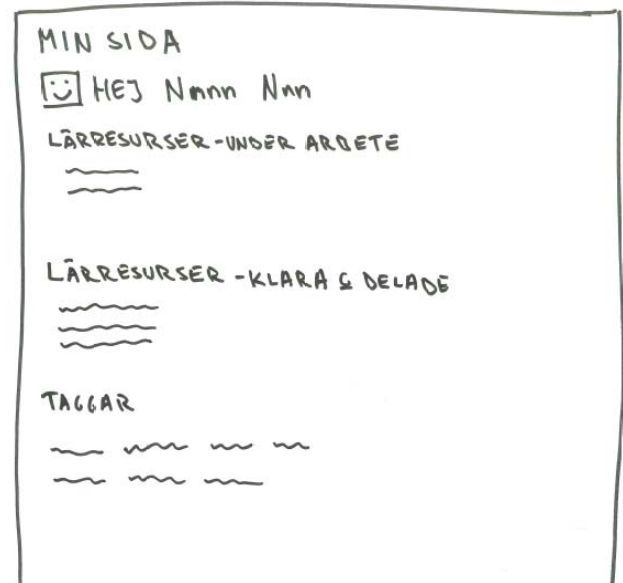 MIN SIDA
HEJ Nnnn Nnn
LÄRRESURSER - UNDER ARBETE
LÄRRESURSER - KLARA & DELADE
TAGGAR